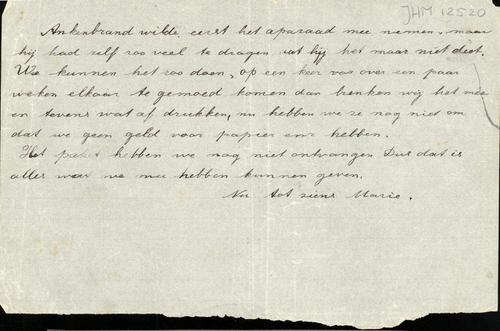 JHM 12520
Ankenbrand wilde eerst het aparaad mee nemen, maar
hij had zelf zoo veel te dragen dat hij het maar niet deet.
We kunnen het zoo doen, op een keer over een paar
weken elkaar te gemoed komen dan brenken wij het mee
en tevens wat af drukken, nu hebben we ze nog niet om
dat we geen geld voor papier enz hebben.
Het paket hebben we nog niet ontvangen Dus dat is
alles waar we mee hebben kunnen geven.
Nu tot ziens Marie.